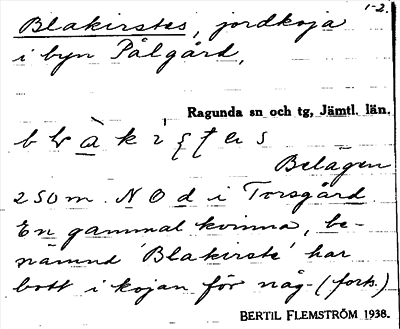 1-2.
Blakirstes, jordkoja
i byn Pålgård,
Ragunda sn och tg, Jämtl. län.
Belägen
250 m. N O d i Torsgård
En gammal kvinna, be-
nämnd 'Blakirste' har
bott i kojan för någ- (forts.)
BERTIL FLEMSTRÖM 1938.